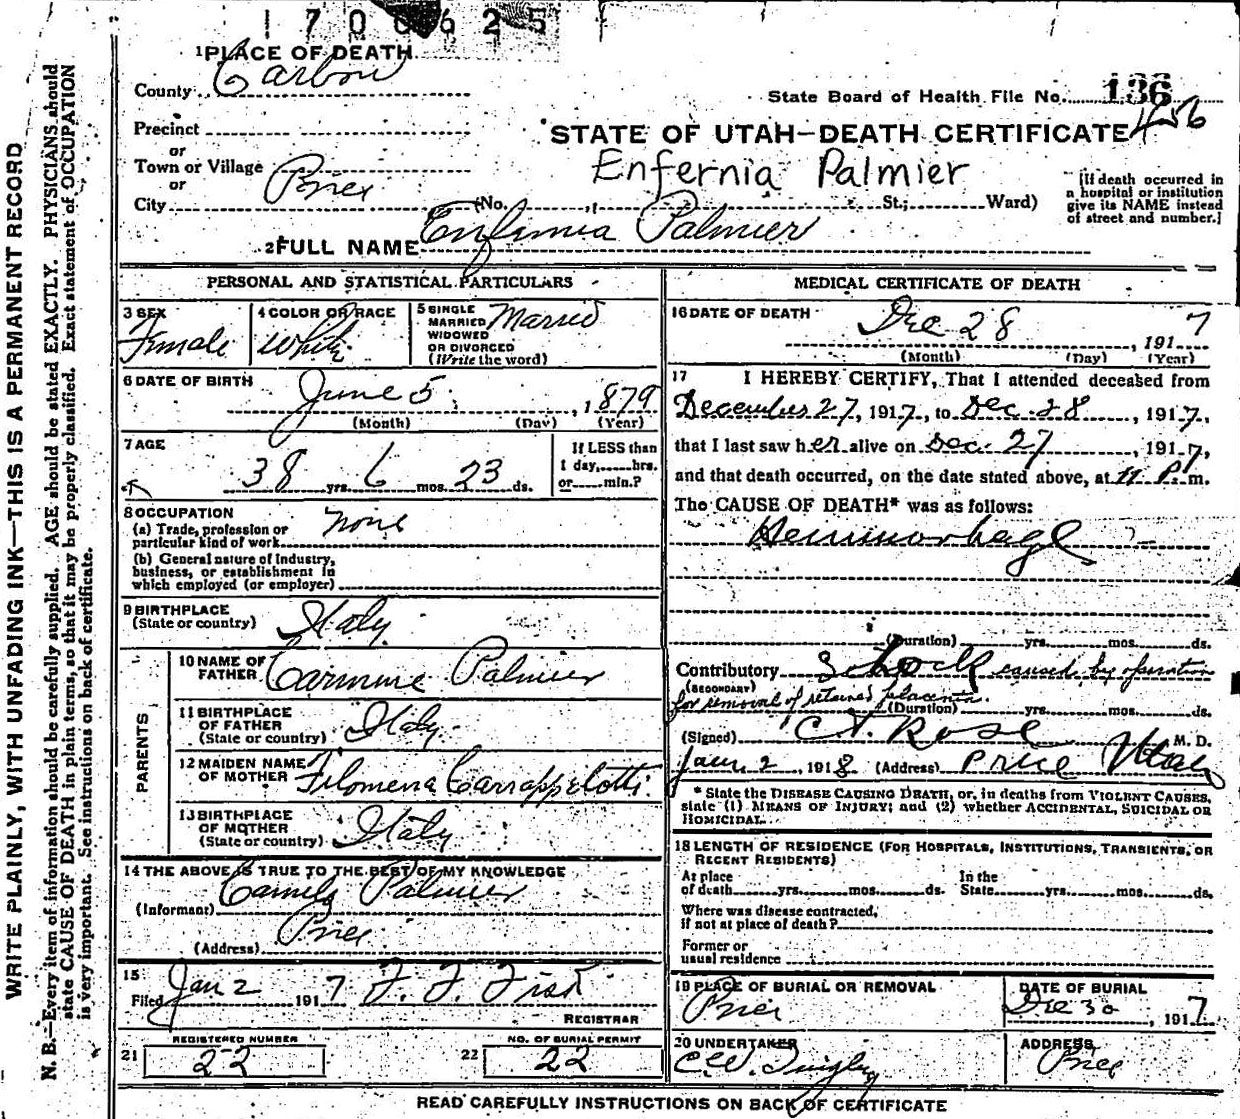 1700625
1 PLACE OF DEATH
County Carbon
State Board of Health File No. 136
456
Precinct
or
STATE OF UTAH—DEATH CERTIFICATE
Town or Village
or
Enfernia Palmier
City Price (No. , St.; Ward)
[If death occurred in
a hospital or institution
give its NAME instead
of street and number.]
2 FULL NAME Enfirnia Palmier
PERSONAL AND STATISTICAL PARTICULARS
3 SEX Female
4 COLOR OR RACE White
5 SINGLE
MARRIED
WIDOWED
OR DIVORCED
(Write the word) Married
6 DATE OF BIRTH
June 5, 1879
(Month) (Day) (Year)
7 AGE
38 yrs. 6 mos. 23 ds.
If LESS than
1 day,......hrs.
or......min.?
8 OCCUPATION
(a) Trade, profession or
particular kind of work none
(b) General nature of industry,
business, or establishment in
which employed (or employer)
9 BIRTHPLACE
(State or country) Italy
PARENTS
10 NAME OF
FATHER Carmine Palmier
11 BIRTHPLACE
OF FATHER
(State or country) Italy
12 MAIDEN NAME
OF MOTHER Filomena Carrappelotti
13 BIRTHPLACE
OF MOTHER
(State or country) Italy
14 THE ABOVE IS TRUE TO THE BEST OF MY KNOWLEDGE
(Informant) Palmier
(Address) Price
15
Filed Jan 2 1917 F. F. Fisk
REGISTRAR
REGISTERED NUMBER
21 22
NO. OF BURIAL PERMIT
22 22
MEDICAL CERTIFICATE OF DEATH
16 DATE OF DEATH Dec 28, 1917
(Month) (Day) (Year)
17 I HEREBY CERTIFY, That I attended deceased from
December 27, 1917, to Dec. 28, 1917,
that I last saw her alive on Dec. 27, 1917,
and that death occurred, on the date stated above, at 11 P. m.
The CAUSE OF DEATH* was as follows:
Hemmorhage
(Duration) yrs. mos. ds.
Contributory Shock caused by operation
(SECONDARY)
for removal of retained placenta.
(Duration) yrs. mos. ds.
(Signed) C. T. Rose M. D.
Jan. 2, 1918 (Address) Price Utah
* State the DISEASE CAUSING DEATH, or, in deaths from VIOLENT CAUSES,
state (1) MEANS OF INJURY; and (2) whether ACCIDENTAL, SUICIDAL OR
HOMICIDAL.
18 LENGTH OF RESIDENCE (FOR HOSPITALS, INSTITUTIONS, TRANSIENTS, OR
RECENT RESIDENTS)
At place
of death yrs. mos. ds.
In the
State yrs. mos. ds.
Where was disease contracted,
if not at place of death?
Former or
usual residence
19 PLACE OF BURIAL OR REMOVAL
Price
DATE OF BURIAL
Dec 30, 1917
20 UNDERTAKER
C. W.
ADDRESS
Price
READ CAREFULLY INSTRUCTIONS ON BACK OF CERTIFICATE
WRITE PLAINLY, WITH UNFADING INK—THIS IS A PERMANENT RECORD
N. B.—Every item of information should be carefully supplied. AGE should be stated EXACTLY. PHYSICIANS should
state CAUSE OF DEATH in plain terms, so that it may be properly classified. Exact statement of OCCUPATION
is very important. See instructions on back of certificate.